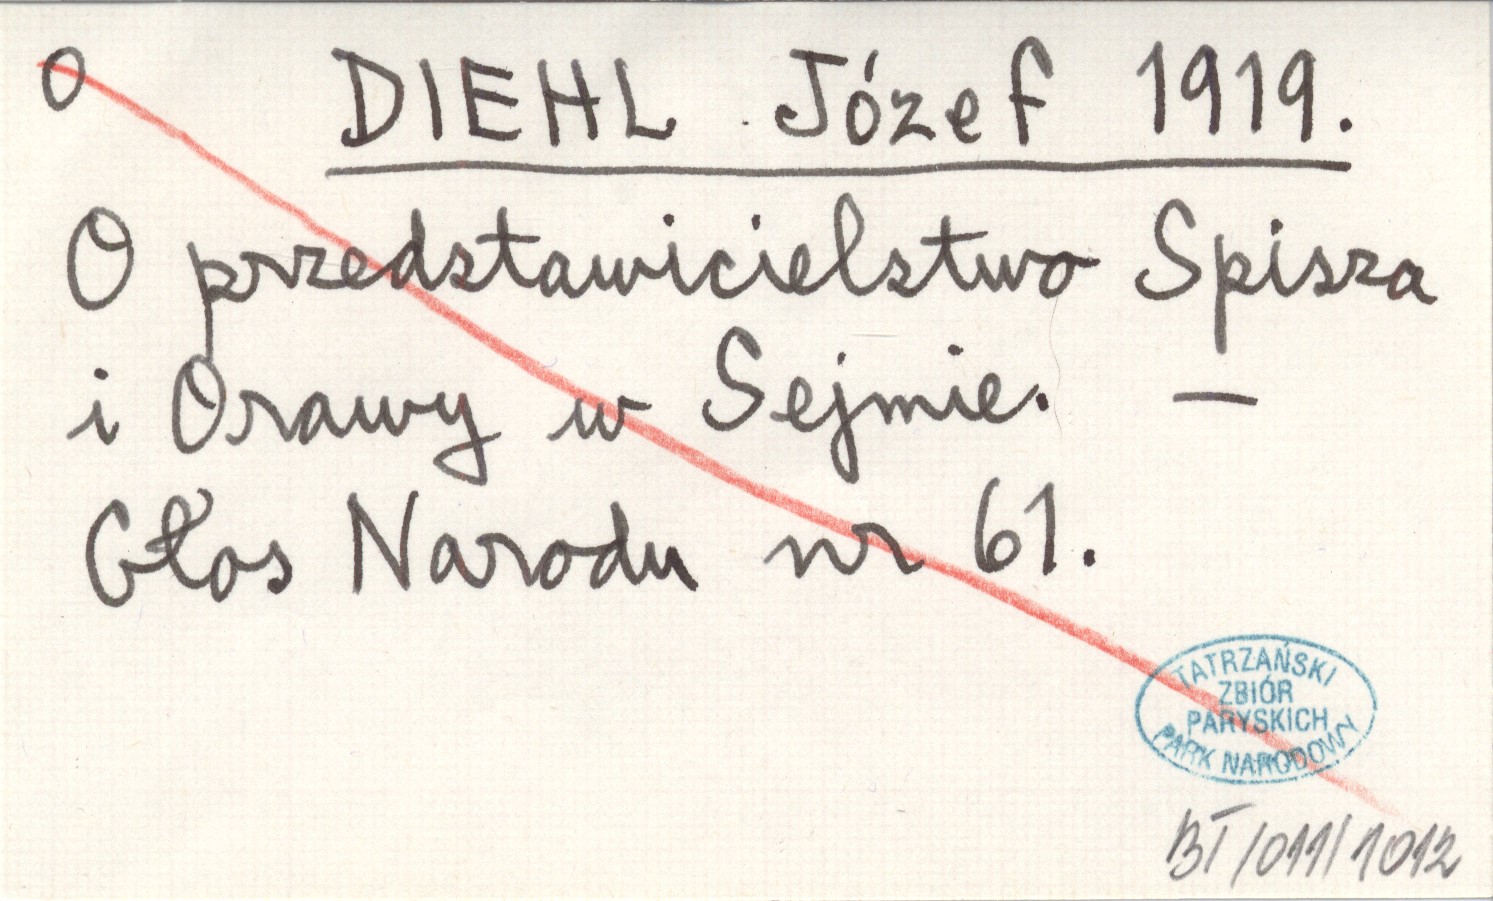 O DIEHL Józef 1919.
O przedstawicielstwo Spisza
i Orawy w Sejmie. —
Głos Narodu nr 61.
TATRZAŃSKI
ZBIÓR
PARYSKICH
PARK NARODOWY
BT/011/1012